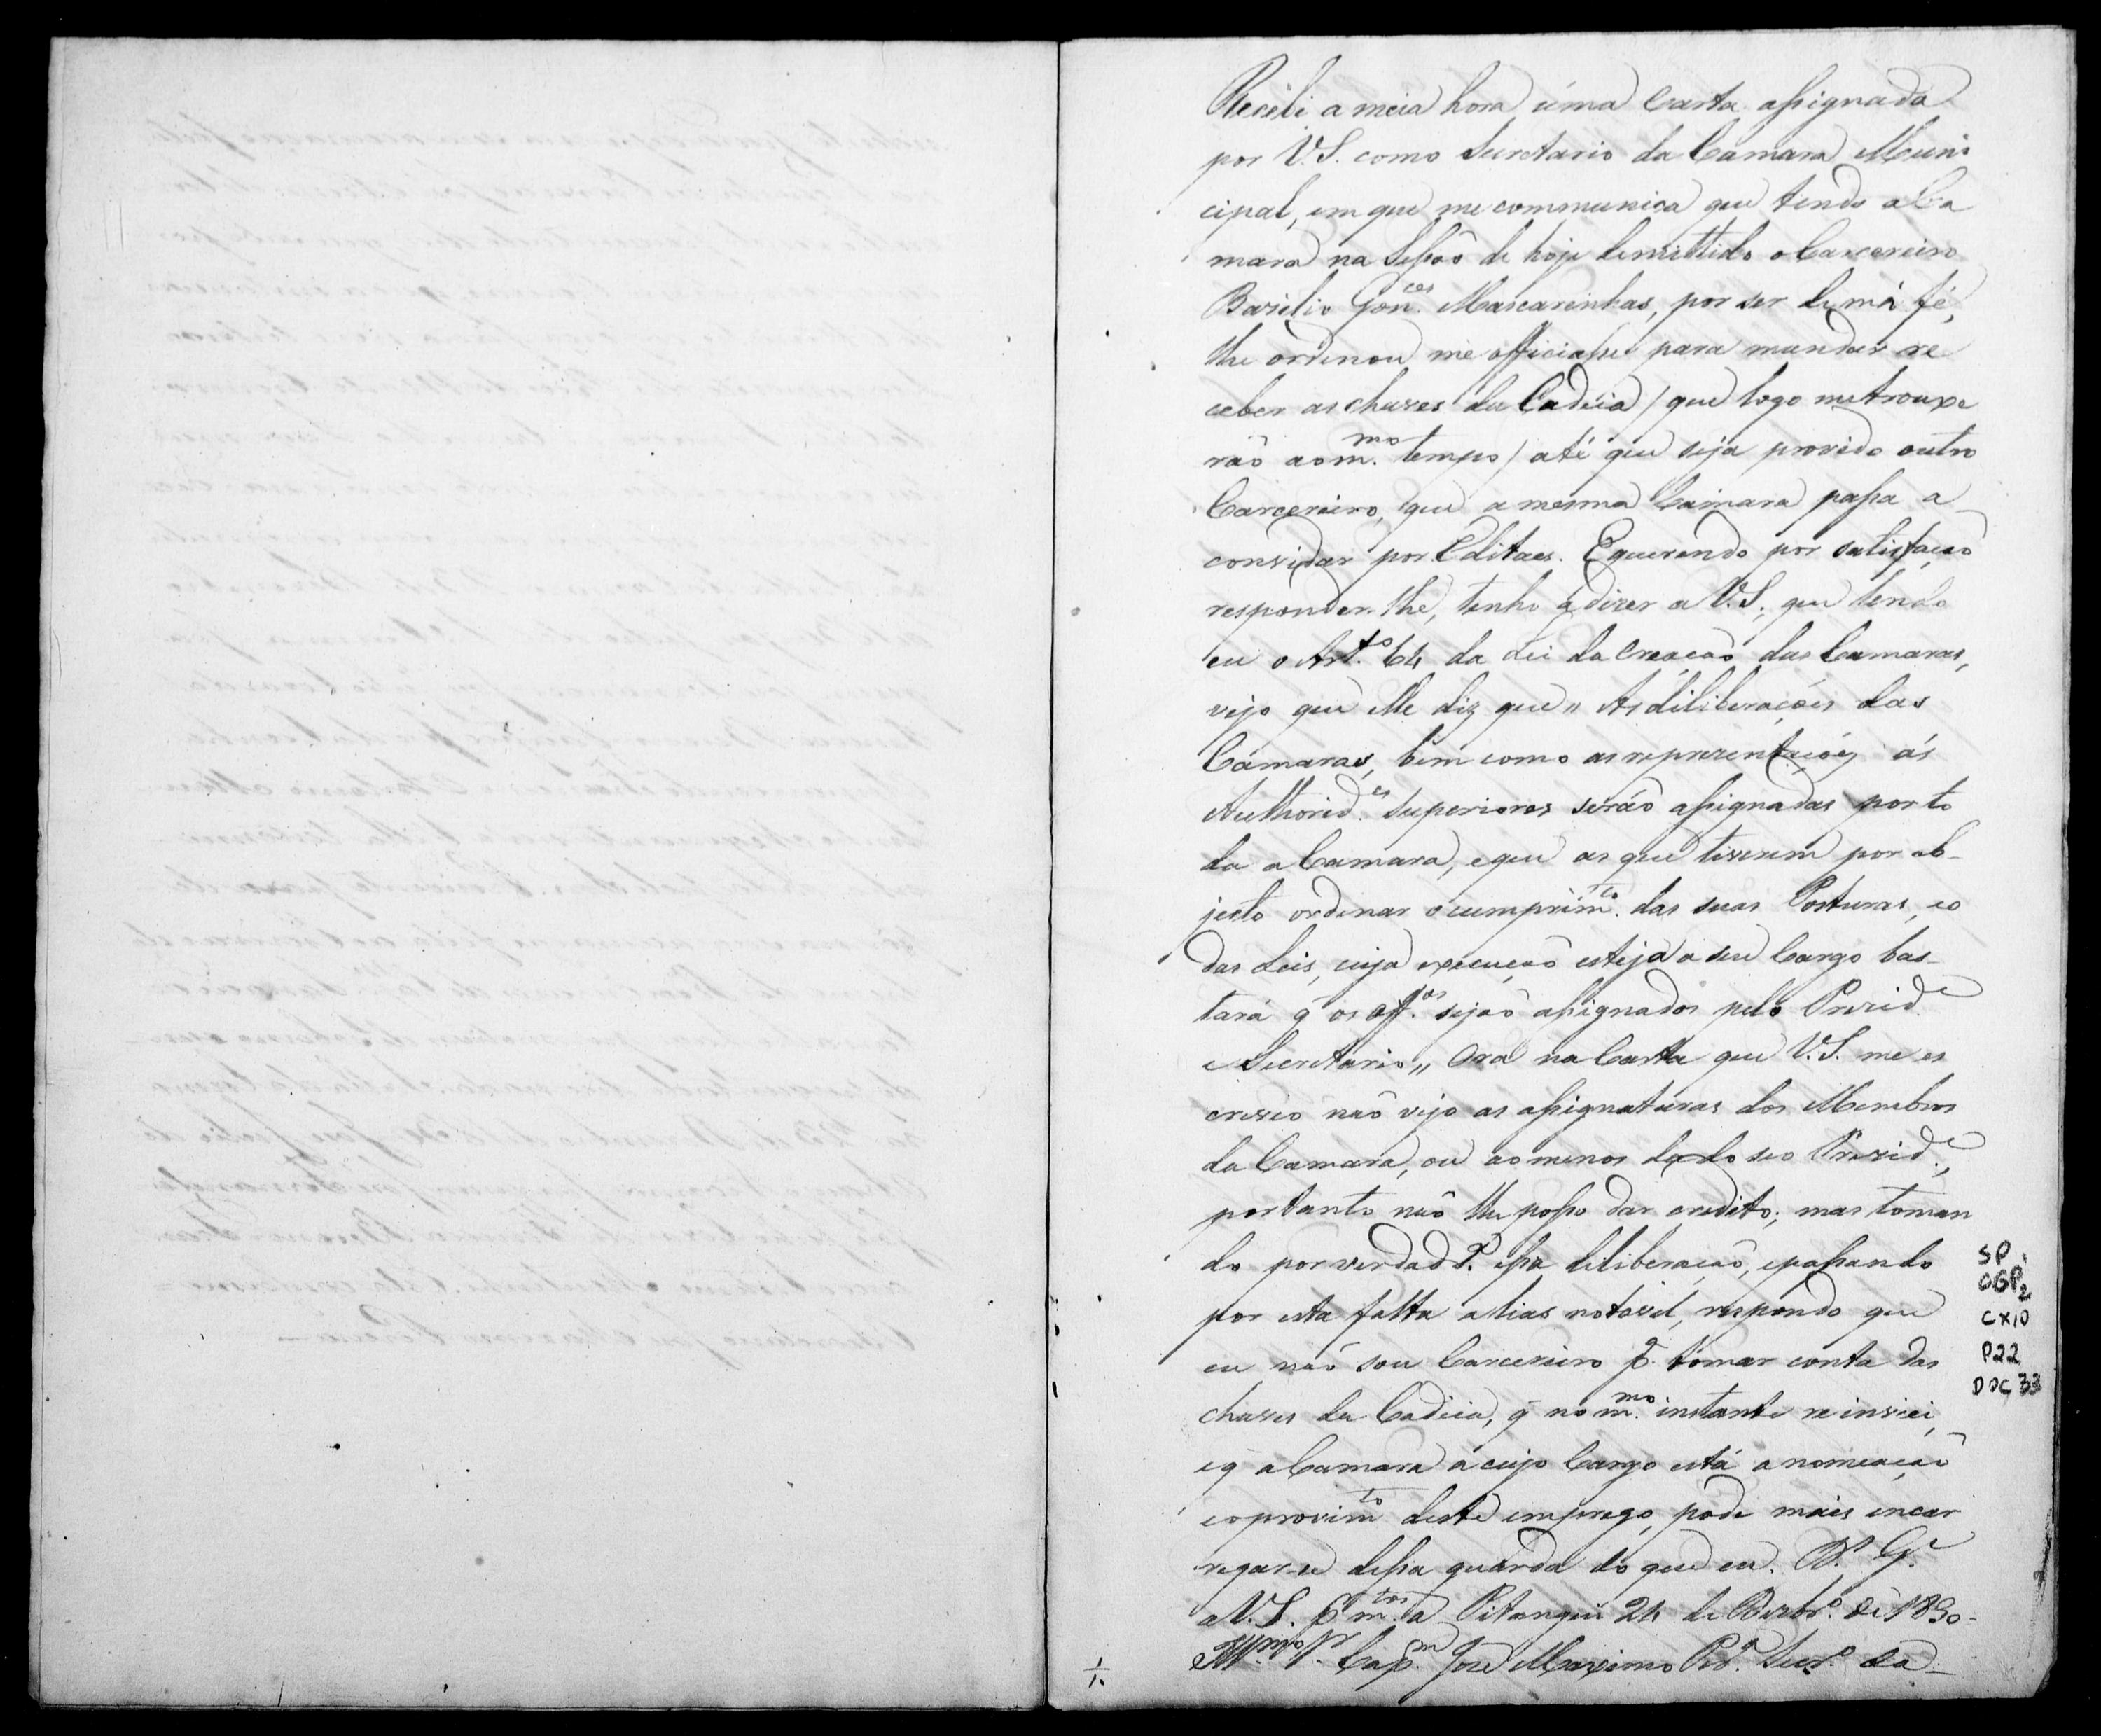 Recebi a meia hora uma Carta assignada
por V.S. como Secretario da Camara Muni
cipal, em que me communica que tendo a Ca
mara na Sessão de hoje demittido o Carcereiro
Basilio Gon.ces Mascarenhas, por ser de má fé,
lhe ordenou me officiasse para mandar re
ceber as chaves da Cadeia / que logo me trouxe
rão ao m.mo tempo / até que seja provido outro
Carcereiro, que a mesma Camara passa a
convidar por Editaes. E querendo por satisfação
responder-lhe, tenho a dizer a V.S., que lendo
eu o Art.º 64 da Lei da Creação das Camaras,
vejo que elle diz que " As diliberações das
Camaras, bem como as reprezentações ás
Authorid.es Superiores serão assignadas por to
da a Camara, e que as que tiverem por ob-
jecto ordenar o cumprim.to das suas Posturas, e o
das Leis, cuja execução esteja a seu Cargo bas-
tará q̃ os off.os sejão assignados pelo Prezid.e
e Secretario " Ora na Carta que V.S. me es
creveo não vejo as assignaturas dos Membros
da Camara, ou ao menos do seo Prezid.e,
portanto não lhe posso dar credito; mas toman
do por verdadr.ª essa diliberação, e passando
por esta falta alias notavel, respondo que
eu não sou Carcereiro p.ª tomar conta das
chaves da Cadeia, q̃ no m.mo instante reinviei,
e q̃ a Camara a cujo Cargo está a nomeação
e o provim.to deste emprego, pode mais encar
regar-se dessa guarda do que eu. D.s G.e
a V.S. p.r m.tos a. Pitangui 24 de Dezbr.º de 1830-
Ill.mo Sr. Cap.m Joze Maximo Pr.ª Secr.º da-
SP
CGP2
CX10
P22
DOC 33